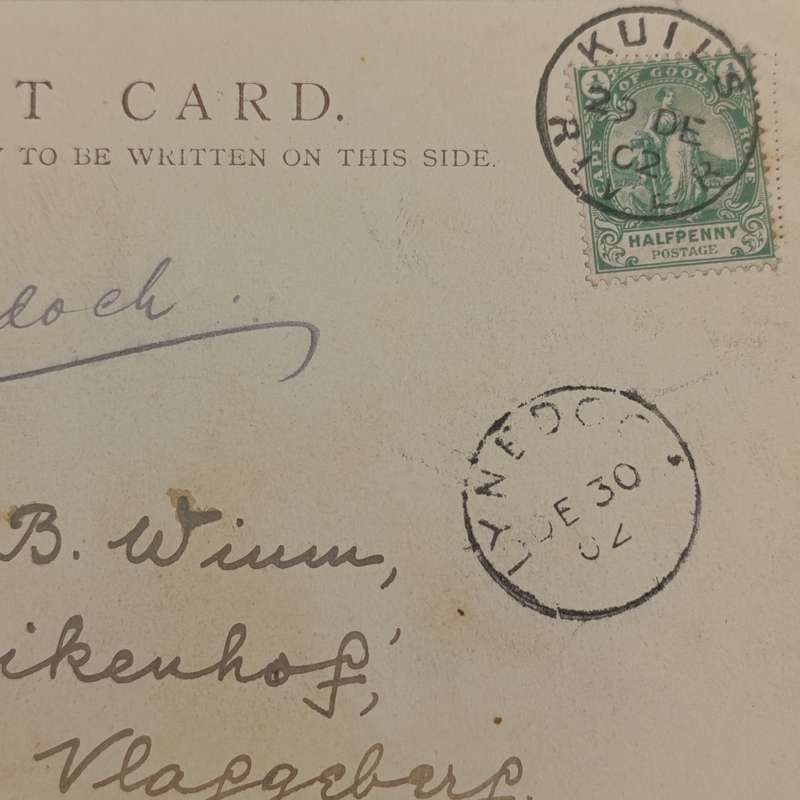 T CARD.
TO BE WRITTEN ON THIS SIDE.
KUILS RIVER
29 DE
02
1/2 CAPE OF GOOD HOPE 1/2
HALFPENNY
POSTAGE
doch.
LYNEDOC
DE 30
02
B. Winm,
ikenhof,
Vlaggeberg.